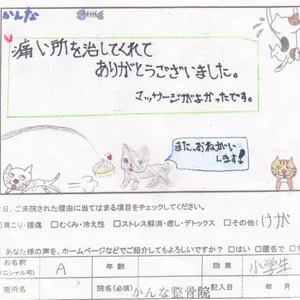 かんな
痛い所を治してくれて
ありがとうございました。
マッサージがよかったです。
また、おねがい
します!
日、ご来院された理由に当てはまる項目をチェックしてください。
□肩こり・腰痛 □むくみ・冷え性 □ストレス解消・癒し・デトックス □その他(けが
あなた様の声を、ホームページなどでご紹介してもよろしいですか? □はい □匿名で
お名前 A 年齢 職業 小学生
イニシャル可)
施術名 院名(必須) かんな整骨院 記入日